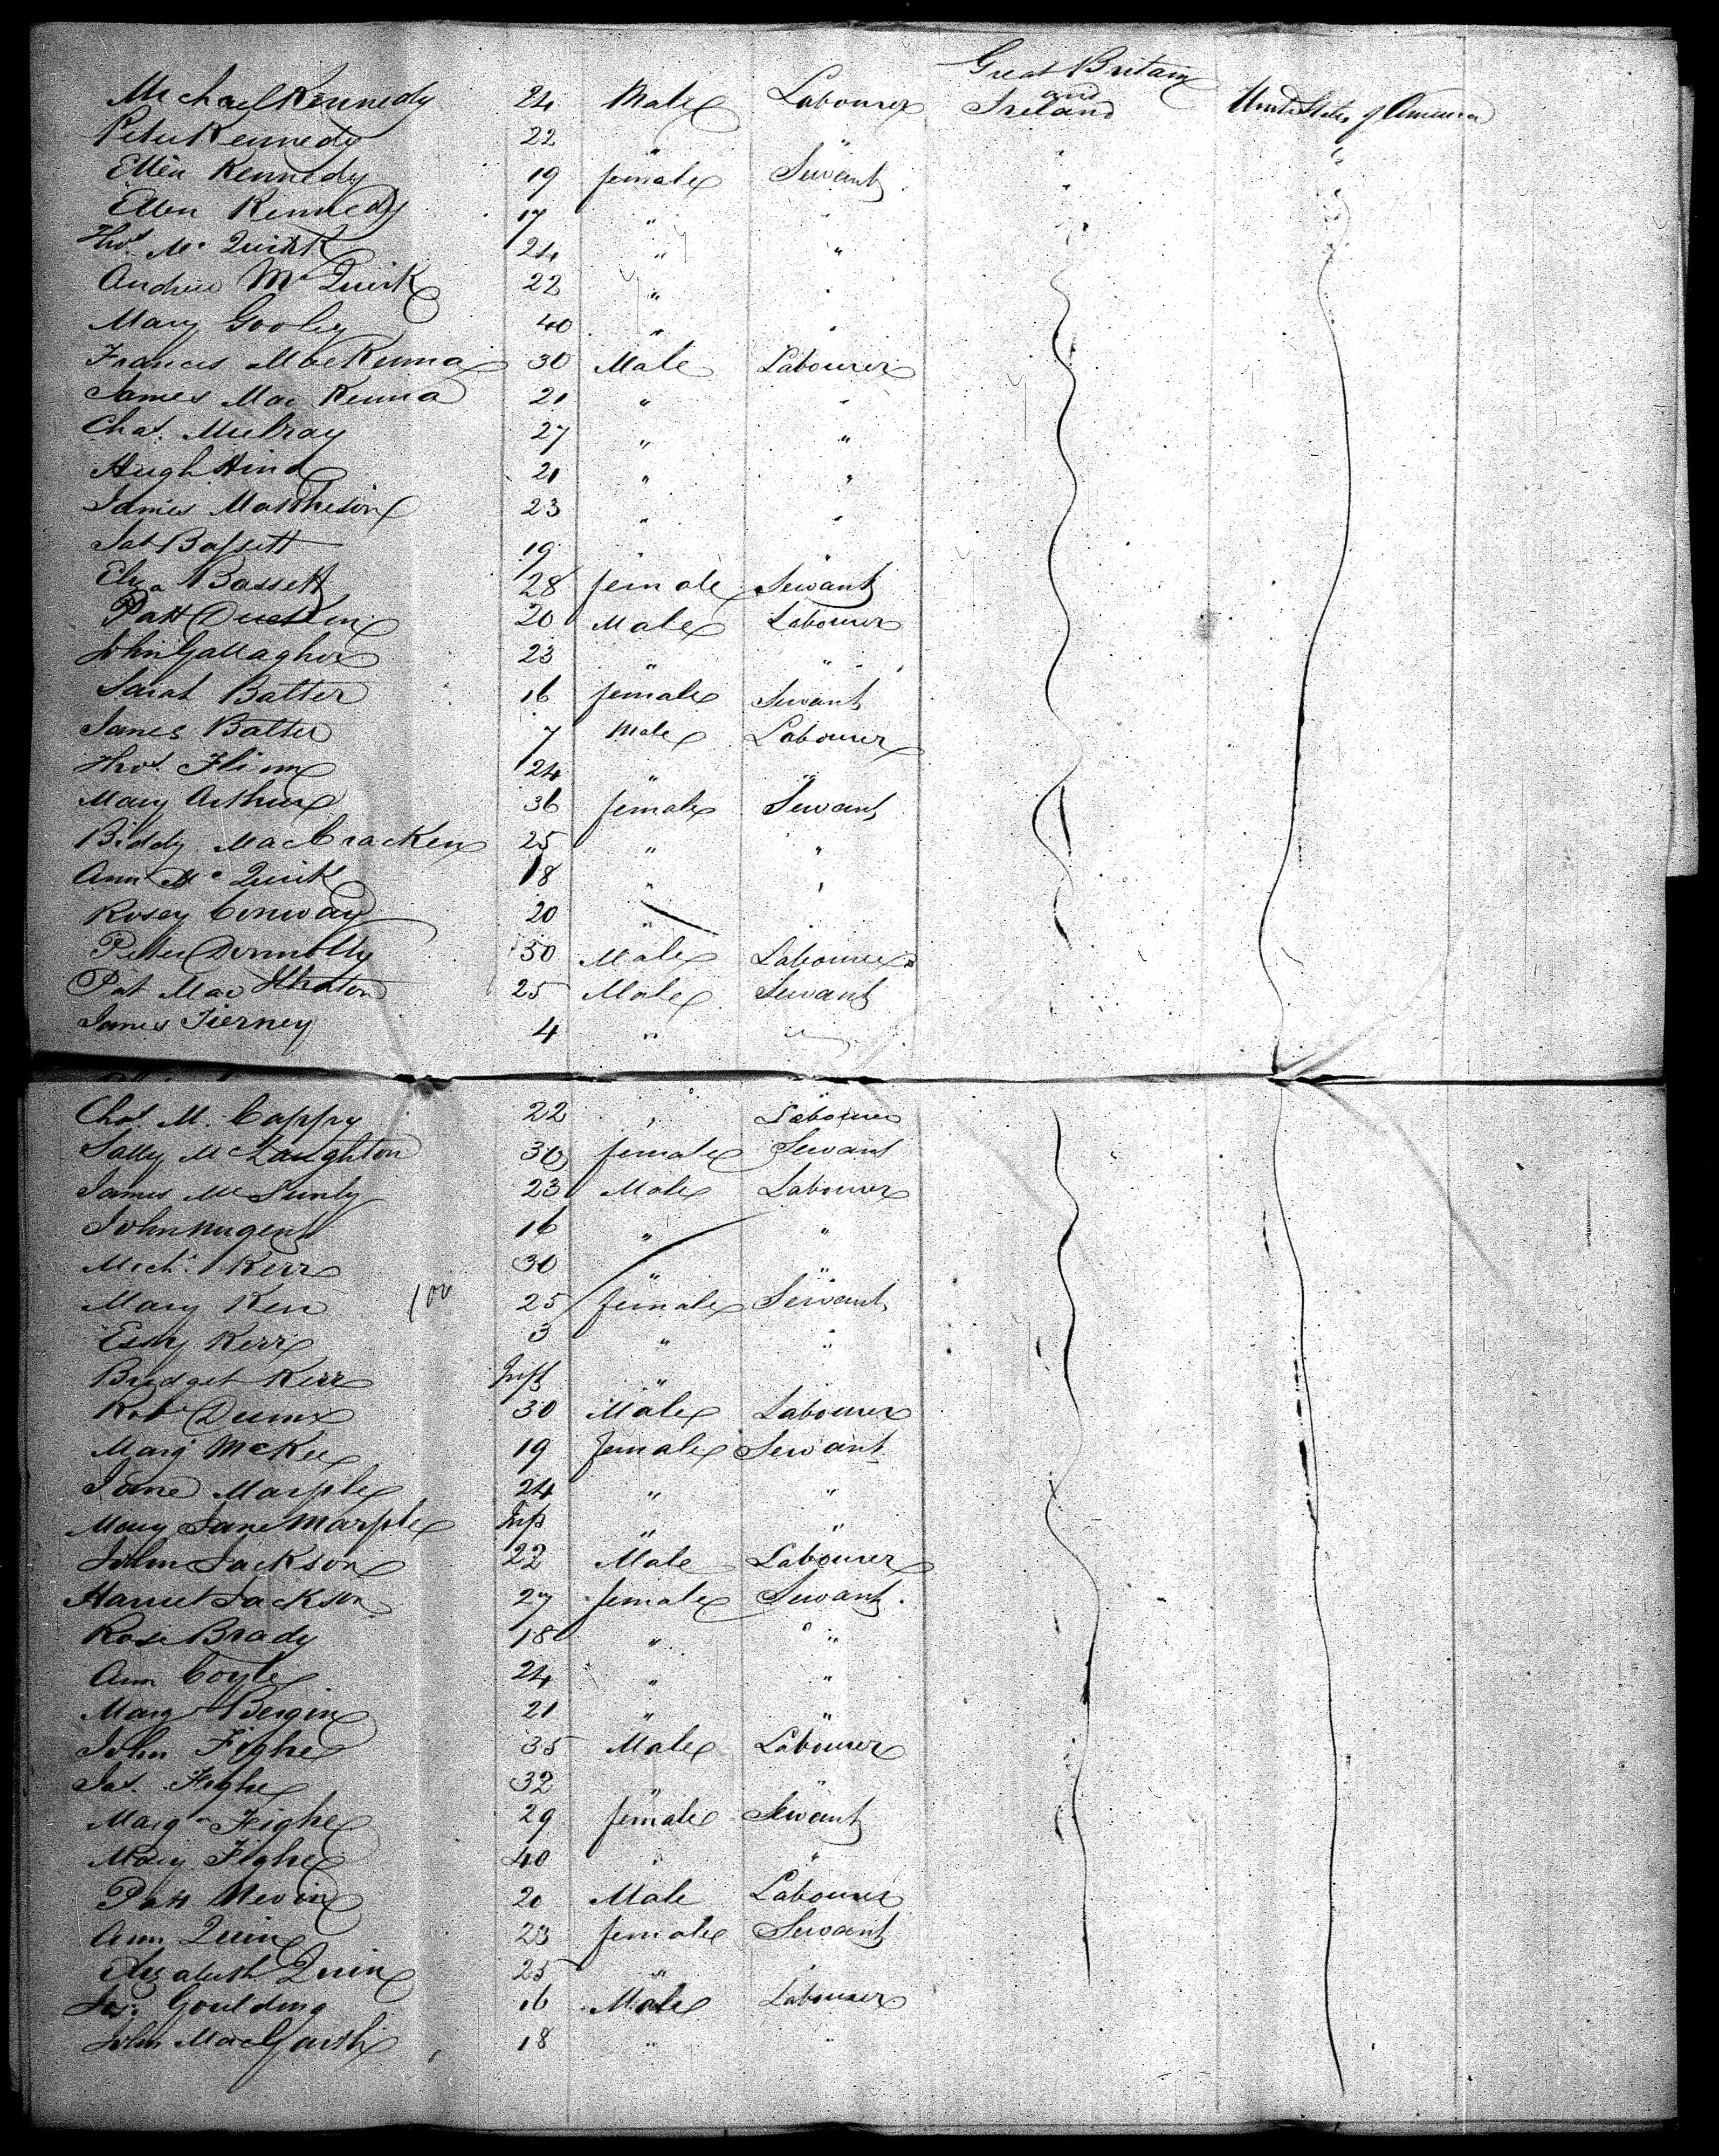 Great Britain
and
Michael Kennedy 24 Male Labourer Ireland United States of America
Peter Kennedy 22 " " " "
Ellen Kennedy 19 female Servant " "
Ellen Kennedy 17 " "
Thos. Mc Quirk 24 " "
Andrew Mc Quirk 22 " "
Mary Gooley 40 " "
Francis Mac Kenna 30 Male Labourer
James Mac Kenna 21 " "
Chas. Mulray 27 " "
Hugh Hind 21 " "
James Mathieson 23 " "
Jas Bassett 19 " "
Eliza Bassett 28 female Servant
Patt 20 Male Labourer
John Gallagher 23 " "
Sarah Batter 16 female Servant
James Batter 7 Male Labourer
Thos. Flinn 24 " "
Mary Arthur 36 female Servant
Biddy MacCracken 25 " "
Ann Mc Quirk 18 " "
Rosey Conway 20 "
Peter Donnolly 30 Male Labourer
Pat Mac 25 Male Servant
James Tierney 4 " "
Chas M. Cappry 22 " Labourer
Sally McLaughton 30 female Servant
James Mc 23 Male Labourer
John Nugent 16 " "
Mich. Kerr 30 " "
Mary Kerr 100 25 female Servant
Essy Kerr 3 " "
Bridget Kerr Inft "
Robt Dunn 30 Male Labourer
Marg McKee 19 female Servant
Jane Marple 24 " "
Mary Jane Marple Inft " "
John Jackson 22 Male Labourer
Harriet Jackson 27 female Servant
Rose Brady 18 " "
Ann Coyle 24 " "
Margt Bergin 21 " "
John Fighe 35 Male Labourer
Jas. Fighe 32 " "
Marg Feighe 29 female Servant
Mary Fighe 40 " "
Patt Nevin 20 Male Labourer
Ann Quin 23 female Servant
Elizabeth Quin 25 " "
Jas. Goulding 16 Male Labourer
John MacGarth 18 " "